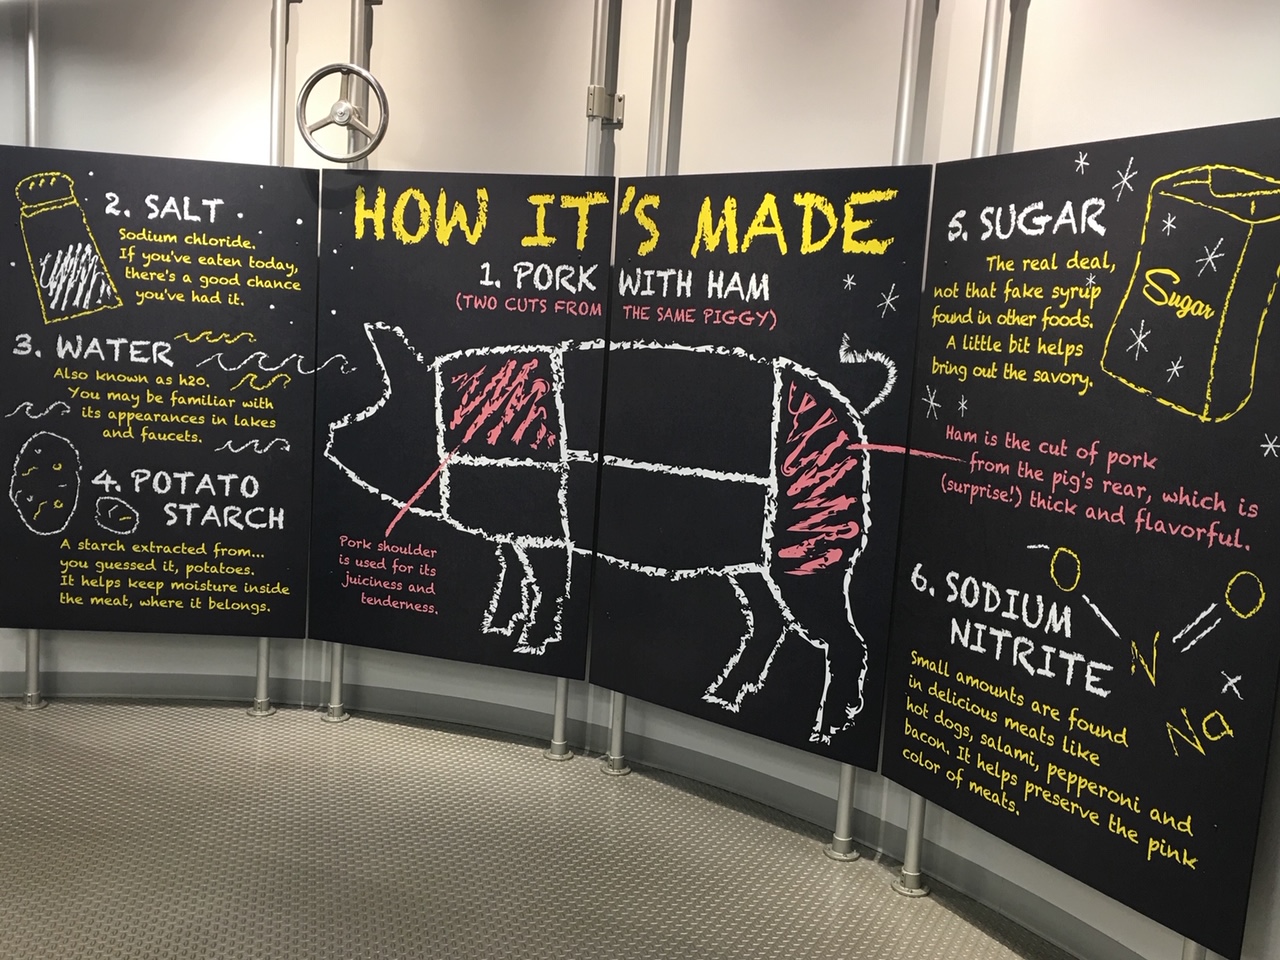 HOW IT'S MADE
1. PORK WITH HAM
(TWO CUTS FROM THE SAME PIGGY)
Pork shoulder
is used for its
juiciness and
tenderness.
2. SALT
Sodium chloride.
If you've eaten today,
there's a good chance
you've had it.
3. WATER
Also known as h2o.
You may be familiar with
its appearances in lakes
and faucets.
4. POTATO
STARCH
A starch extracted from...
you guessed it, potatoes.
It helps keep moisture inside
the meat, where it belongs.
5. SUGAR
The real deal,
not that fake syrup
found in other foods.
A little bit helps
bring out the savory.
Sugar
Ham is the cut of pork
from the pig's rear, which is
(surprise!) thick and flavorful.
6. SODIUM
NITRITE
Small amounts are found
in delicious meats like
hot dogs, salami, pepperoni and
bacon. It helps preserve the pink
color of meats.
N
Na